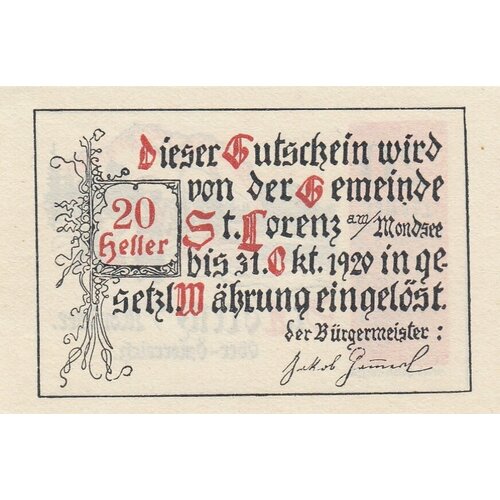 Dieser Gutschein wird
von der Gemeinde
20
Heller
St. Lorenz a/M Mondsee
bis 31. Okt. 1920 in ge-
setzl. Währung eingelöst.
der Bürgermeister:
Jakob